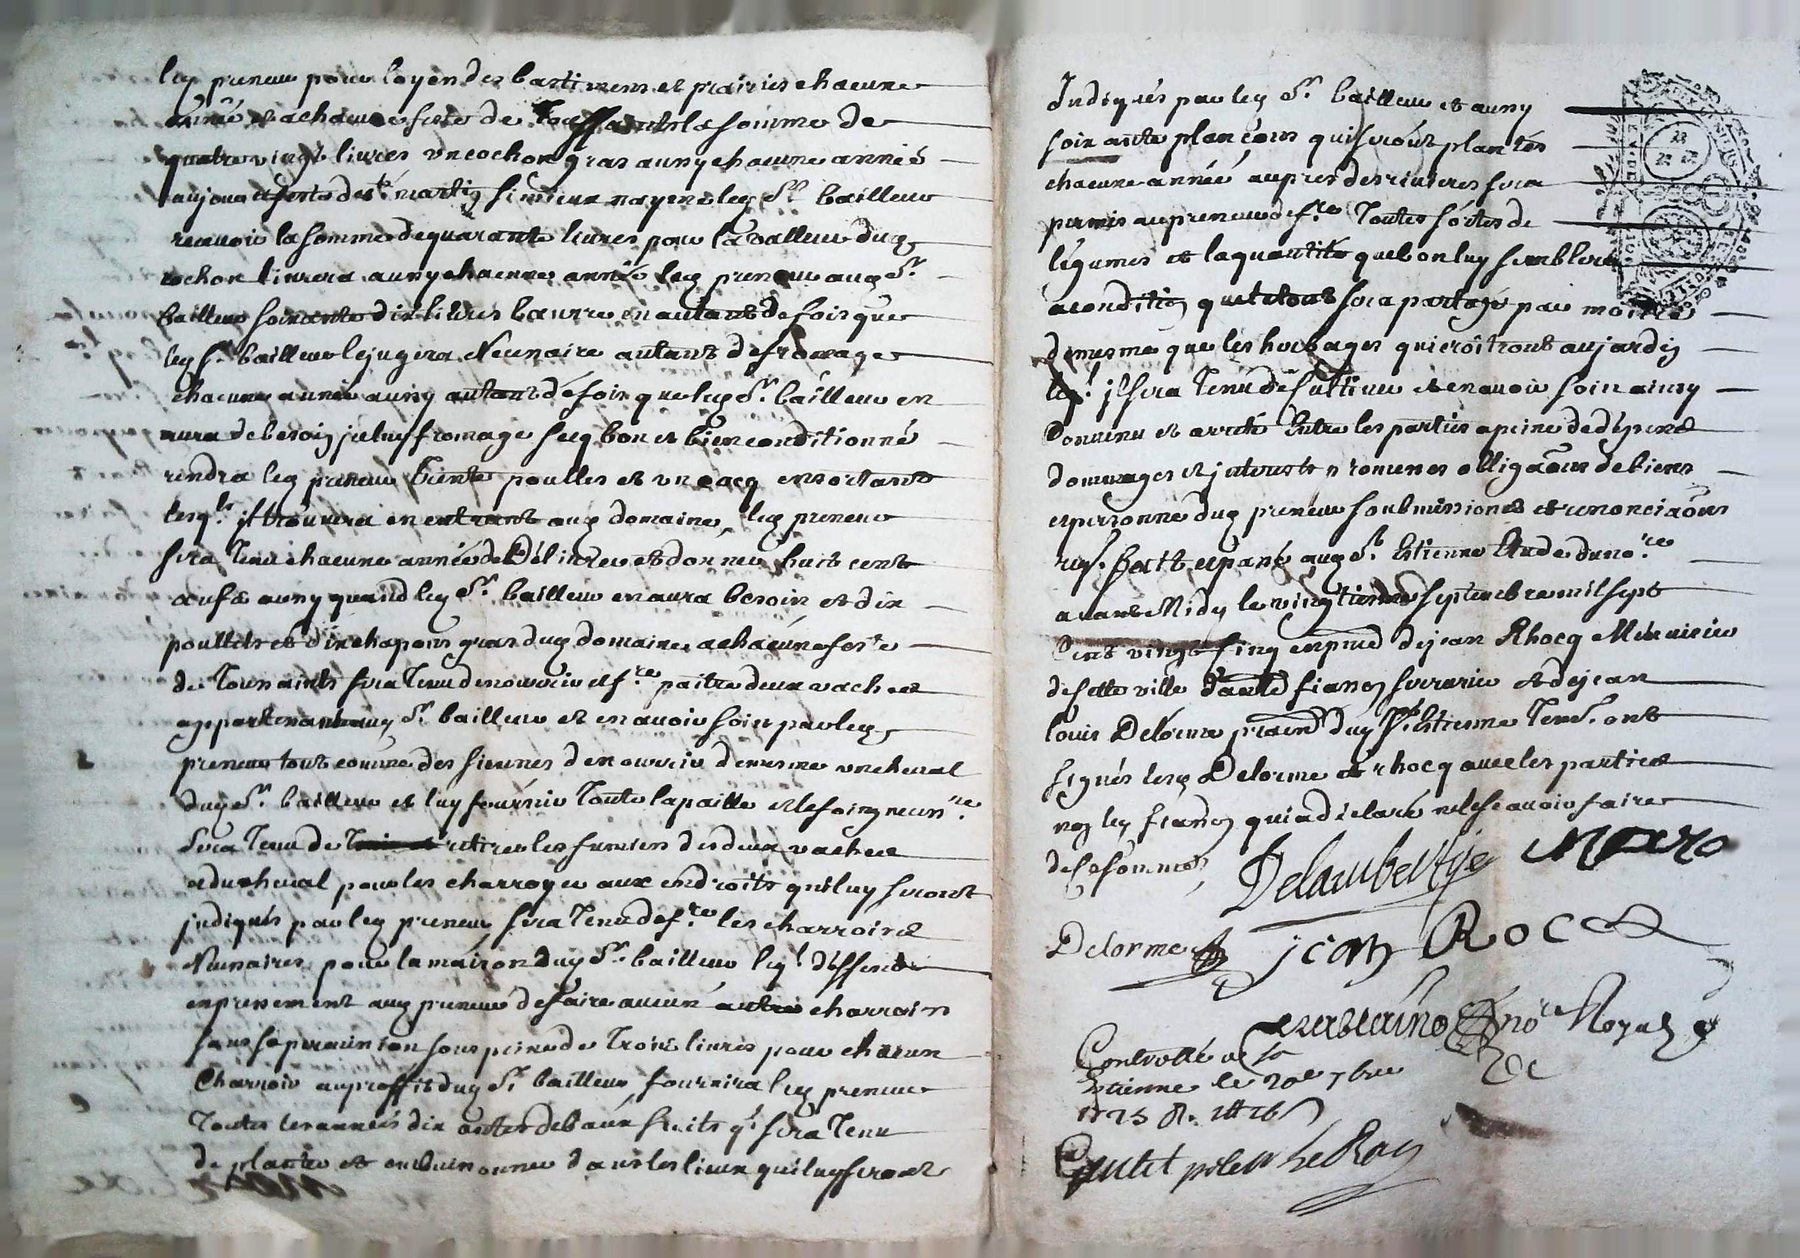 led preneur pour loyer des bastimens et prairies chacune
année et a chacune feste de Toussaints la somme de
quatre vingt livres un cochon gras aussy chacune année
au jour et feste de st martin si mieux n'ayme led sr bailleur
recevoir la somme de quarante livres pour la valleur dud
cochon livrera aussy chacune année led preneur aud sr
bailleur soixante dix livres beurre en autant de fois que
led sr bailleur le jugera necessaire autant de fromage
chacune année aussy autant de fois que led sr bailleur en
aura de besoin iceluy fromage secq bon et bien conditionné
rendra led preneur trente poulles et un cacq en sortant
lesqls il trouvera en entrant aud domaine, led preneur
sera tenu chacune année de délivrer et donner huit cent
œufs aussy quand led sr bailleur en aura besoin et dix
poullets et dix chapons gras dud domaine a chacune feste
de Toussaints sera tenu de nourrir et fre paitre deux vaches
appartenant aud sr bailleur et en avoir soin par led
preneur tout comme des siennes de nourrir de mesme un cheval
dud sr bailleur et luy fournir toute la paille et le foin necessre
sera tenu de retirer les fumiers desd deux vaches
et du cheval pour les charroyer aux endroits qui luy seront
indiqués par led preneur sera tenu de fre les charroirs
necessaires pour la maison dud sr bailleur leql deffend
expressement aud preneur de faire aucun autre charroirs
sans sa permission sous peine de trois livres pour chacun
charroir au proffit dud sr bailleur fournira led preneur
toutes les années dix antes de baux fruits ql sera tenu
de planter et embuissonner dans les lieux qui luy seront
Indiqués par led sr bailleur et aussy
soixante plançons qui seront plantés
chacune année aupres des rivieres sera
permis au preneur de fre toutes sortes de
légumes et la quantité que bon luy semblera
a condition que le tout sera partagé par moitié
de mesme que les herbages qui croitront au jardin
leql il sera tenu de cultiver et en avoir soin ainsy
convenu et arrêté entre les parties a peine de dépens
dommages et interests promesses obligaôns de biens
et personne dud preneur soubmissions et renonciaôns
req. fait et passé aud st Estienne Etude du nore
avant Midy le vingtieme septembre mil sept
cent vingt cinq en pnce de jean Rhocq Menuisier
de cette ville serrurier et de jean
louis Delorme dud st Estienne tems. ont
signés lesd Delorme et rhocq avec les parties
non led qui a déclaré ne le scavoir faire
de ce sommé
Delorme jean Rocq
nore Royal
Controllé a St
Etienne le 20e 7bre
1725 R.